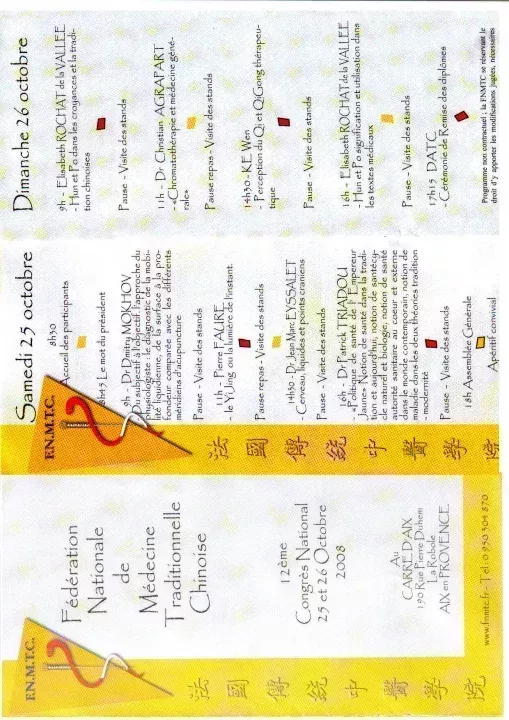 F.N.M.T.C.
Fédération
Nationale
de
Médecine
Traditionnelle
Chinoise
12ème
Congrès National
25 et 26 Octobre
2008
Au
CARRE D'AIX
190 Rue Pierre Duhem
La Robole
AIX en PROVENCE
www.fnmtc.fr - Tél : 0 950 304 870
法國傳統中醫學院
F.N.M.T.C.
Samedi 25 octobre
8h30
Accueil des participants
8h45 Le mot du président
9h - Dr Dmitry MOKHOV
Du subjectif à l'objectif l'approche du
physiologiste : le diagnostic de la mobi-
lité liquidienne, de la surface à la pro-
fondeur comparée avec les différents
méridiens d'acupuncture
Pause - Visite des stands
11h - Pierre FAURE
- le Yi Jing ou la lumière de l'instant.
Pause repas - Visite des stands
14h30 - Dr Jean Marc EYSSALET
- Cerveau, liquides et points craniens
Pause - Visite des stands
16h - Dr Patrick TRIADOU
- « Politique de santé de l' Empereur
Jaune» Notion de santé dans la tradi-
tion et aujourd'hui, notion de santécy-
cle naturel et biologie, notion de santé
autorité sanitaire au coeur et externe
dans le monde contemporain, notion de
maladie dans les deux théories tradition
- modernité
Pause - Visite des stands
18h Assemblée Générale
Apéritif convivial
法國傳統中醫學院
Dimanche 26 octobre
9h - Elisabeth ROCHAT de la VALLEE
- Hun et Po dans les croyances et la tradi-
tion chinoises
Pause - Visite des stands
11h - Dr Christian AGRAPART
- «Chromatothérapie et médecine géné-
rale»
Pause repas - Visite des stands
14h30 - KE Wen
- Perception du Qi et QiGong thérapeu-
tique
Pause - Visite des stands
16h - Elisabeth ROCHAT de la VALLEE
- Hun et Po signification et utilisation dans
les textes médicaux
Pause - Visite des stands
17h15 DATC
- Cérémonie de Remise des diplômes
Programme non contractuel ; la FNMTC se réservant le
droit d'y apporter les modifications jugées, nécessaires